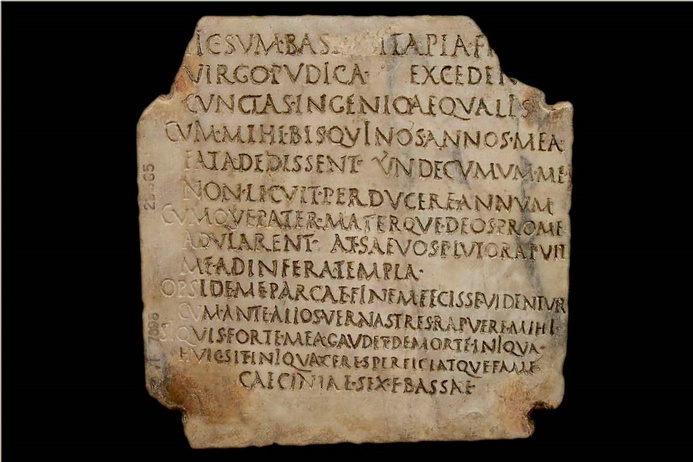 HIC·SVM·BAS ITA·PIA·F
VIRGO·PVDICA· EXCEDEN
CVNCTAS·INGENIO·AEQVALIS
CVM·MIHI·BIS·QVINOS·ANNOS·MEA
FATA·DEDISSENT· VNDECVMVM·ME
NON·LICVIT·PERDVCERE·ANNVM
CVMQVE·PATER·MATERQVE·DEOS·PRO·ME
ADVLARENT· AT·SAEVOS·PLVTO·RAPVIT
ME·AD·INFERA·TEMPLA·
OPSIDE·ME·PARCAE·FINEM·FECISSE·VIDENTVR
CVM·ANTE·ALIOS·VERNAS·TRES·RAPVERE·MIHI
SIQVIS·FORTE·MEA·GAVDET·DE·MORTE·INIQVA·
HVIC·SIT·INIQVA·CERES·PERFICIATQVE·FAME
CAECINIAE·SEX·F·BASSAE